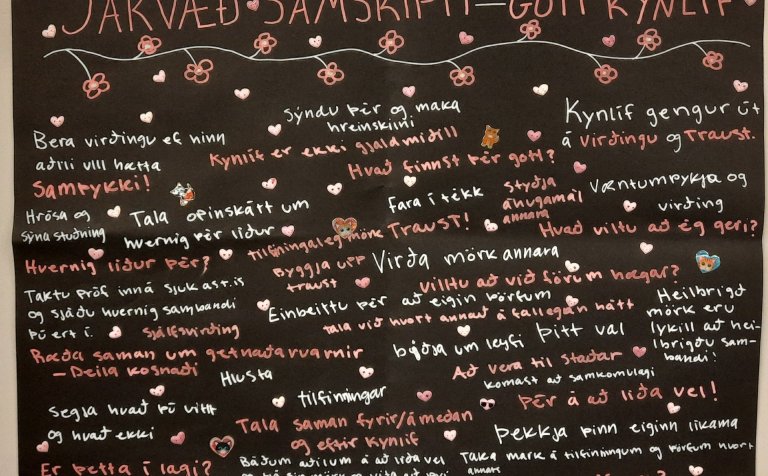 JÁKVÆÐ SAMSKIPTI = GOTT KYNLÍF
Bera virðingu ef hinn
aðili vill hætta
Samþykki!
Sýndu þér og maka
hreinskilni
Kynlíf er ekki gjaldmiðill
Hvað finnst þér gott?
Kynlíf gengur út
á Virðingu og Traust.
Hrósa og
sýna stuðning
Tala opinskátt um
hvernig þér líður
tilfiningaleg mörk
Fara í tékk
TRAUST!
styðja
áhugamál
annara
Væntumþykja og
virðing
Hvað viltu að ég geri?
Hvernig líður þér?
Byggja upp
traust
Virða mörk annara
Viltu að við förum hægar?
Taktu próf inná sjukast.is
og sjáðu hvernig sambandi
þú ert í.
Sjálfsvirðing
Einbeittu þér að eigin þörfum
tala við hvort annað á fallegan hátt
Heilbrigð
mörk eru
lykill að hei-
lbrigðu sam-
bandi!
Ræða saman um getnaðarvarnir
- Deila kosnaði
Hlusta
biðja um leyfi
Þitt val
Að vera til staðar
komast að samkomulagi
Þér á að líða vel!
tilfinningar
Segja hvað þú vilt
og hvað ekki
Tala saman fyrir/á meðan
og eftir kynlíf
Þekkja þinn eiginn líkama
Er þetta í lagi?
Báðum aðilum á að líða vel
Taka mark á tilfinningum og þörfum hvort
annars